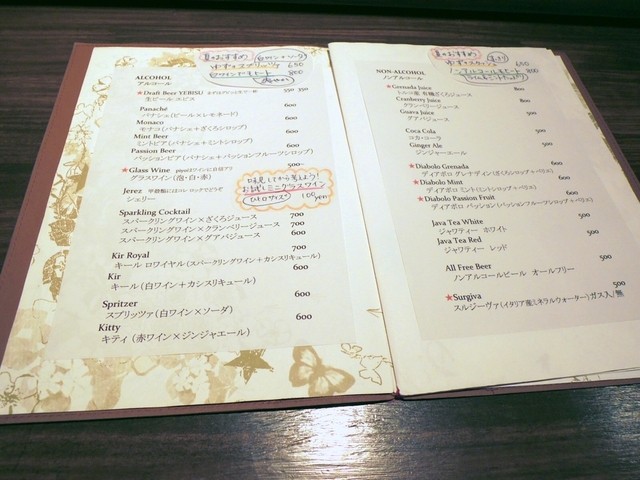 夏のおすすめ
650
800
ALCOHOL
アルコール
★Draft Beer YEBISU
550 350
生ビール エビス
Panaché 600
パナシェ(ビール×レモネード)
Monaco 600
モナコ(パナシェ+ざくろシロップ)
Mint Beer 600
ミントビア(パナシェ+ミントシロップ)
Passion Beer 600
パッションビア(パナシェ+パッションフルーツシロップ)
★Glass Wine 500~
グラスワイン(泡・白・赤)
Jerez
シェリー
味見してから考えよう!
お試しミニグラスワイン
ひと口サイズ 100yen
Sparkling Cocktail
スパークリングワイン×ざくろジュース 700
スパークリングワイン×クランベリージュース 700
スパークリングワイン×グァバジュース 600
Kir Royal 700
キール ロワイヤル(スパークリングワイン+カシスリキュール)
Kir 600
キール(白ワイン+カシスリキュール)
Spritzer 600
スプリッツァ(白ワイン×ソーダ)
Kitty 600
キティ(赤ワイン×ジンジャエール)
夏のおすすめ
650
800
NON-ALCOHOL
ノンアルコール
★Grenada Juice 600
トルコ産 有機ざくろジュース
Cranberry Juice 600
クランベリージュース
Guava Juice 600
グアバジュース
Coca Cola 500
コカ・コーラ
Ginger Ale 500
ジンジャーエール
★Diabolo Grenada 600
ディアボロ グレナディン(ざくろシロップ+ペリエ)
★Diabolo Mint 600
ディアボロ ミント(ミントシロップ+ペリエ)
★Diabolo Passion Fruit 600
ディアボロ パッション(パッションフルーツシロップ+ペリエ)
Java Tea White 500
ジャワティー ホワイト
Java Tea Red 500
ジャワティー レッド
All Free Beer 500
ノンアルコールビール オールフリー
★Surgiva 500
スルジーヴァ(イタリア産ミネラルウォーター)ガス入/無